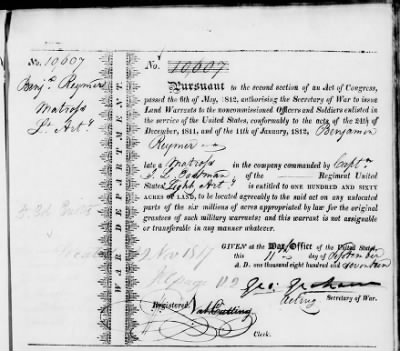 No. 10607
Benj. Reymer
Matross
Lt. Arty.
WAR DEPARTMENT.
No. 10607
Pursuant to the second section of an Act of Congress,
passed the 6th of May, 1812, authorising the Secretary of War to issue
Land Warrants to the noncommissioned Officers and Soldiers enlisted in
the service of the United States, conformably to the acts of the 24th of
December, 1811, and of the 11th of January, 1812, Benjamin
Reymer
late a Matross in the company commanded by Captn
Regiment United
States Light Arty. is entitled to ONE HUNDRED AND SIXTY
ACRES OF LAND, to be located agreeably to the said act on any unlocated
parts of the six millions of acres appropriated by law for the original
grantees of such military warrants; and this warrant is not assignable
or transferable in any manner whatever.
GIVEN at the War Office of the United States,
this 11th day of September
A. D. one thousand eight hundred and seventeen
Geo: Graham
Acting Secretary of War.
Registered Nat Cutting
Clerk.
Nov 1817